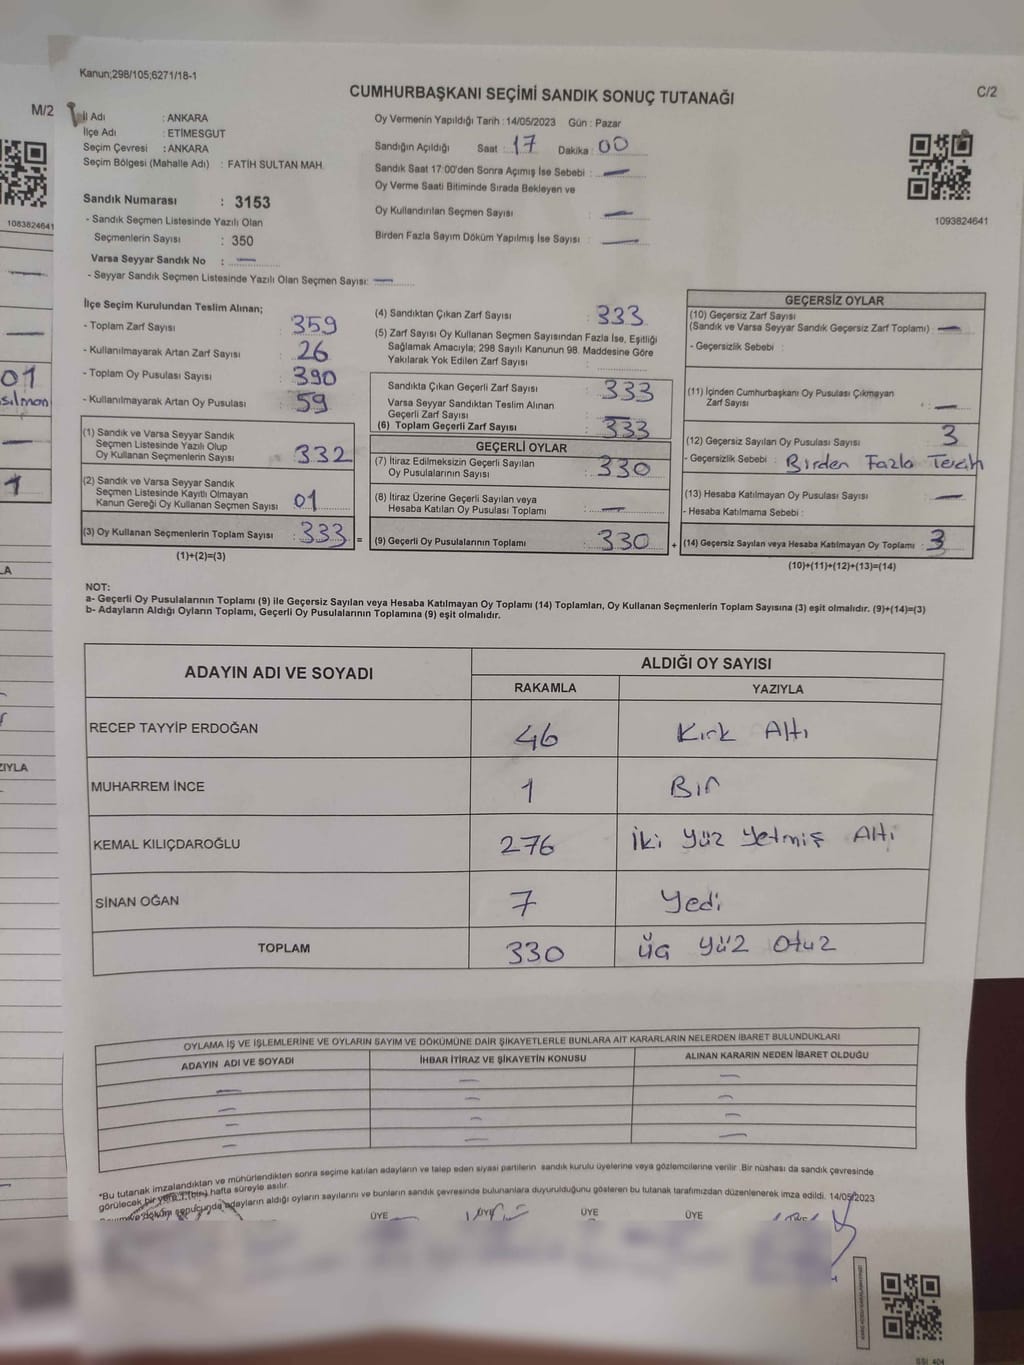 Kanun;298/105;6271/18-1
CUMHURBAŞKANI SEÇİMİ SANDIK SONUÇ TUTANAĞI
C/2
M/2
İl Adı : ANKARA
İlçe Adı : ETİMESGUT
Seçim Çevresi : ANKARA
Seçim Bölgesi (Mahalle Adı) : FATİH SULTAN MAH.
Oy Vermenin Yapıldığı Tarih :14/05/2023 Gün : Pazar
Sandığın Açıldığı Saat : 17 Dakika : 00
Sandık Saat 17:00'den Sonra Açımış İse Sebebi : —
Oy Verme Saati Bitiminde Sırada Bekleyen ve
Oy Kullandırılan Seçmen Sayısı : —
Birden Fazla Sayım Döküm Yapılmış İse Sayısı : —
1093824641
1083824641
Sandık Numarası : 3153
- Sandık Seçmen Listesinde Yazılı Olan
Seçmenlerin Sayısı : 350
Varsa Seyyar Sandık No : —
- Seyyar Sandık Seçmen Listesinde Yazılı Olan Seçmen Sayısı: —
İlçe Seçim Kurulundan Teslim Alınan;
- Toplam Zarf Sayısı : 359
- Kullanılmayarak Artan Zarf Sayısı : 26
- Toplam Oy Pusulası Sayısı : 390
- Kullanılmayarak Artan Oy Pusulası : 59
(1) Sandık ve Varsa Seyyar Sandık
Seçmen Listesinde Yazılı Olup
Oy Kullanan Seçmenlerin Sayısı : 332
(2) Sandık ve Varsa Seyyar Sandık
Seçmen Listesinde Kayıtlı Olmayan
Kanun Gereği Oy Kullanan Seçmen Sayısı : 01
(3) Oy Kullanan Seçmenlerin Toplam Sayısı : 333 =
(1)+(2)=(3)
(4) Sandıktan Çıkan Zarf Sayısı : 333
(5) Zarf Sayısı Oy Kullanan Seçmen Sayısından Fazla İse, Eşitliği
Sağlamak Amacıyla; 298 Sayılı Kanunun 98. Maddesine Göre
Yakılarak Yok Edilen Zarf Sayısı :
Sandıkta Çıkan Geçerli Zarf Sayısı : 333
Varsa Seyyar Sandıktan Teslim Alınan
Geçerli Zarf Sayısı : —
(6) Toplam Geçerli Zarf Sayısı : 333
GEÇERLİ OYLAR
(7) İtiraz Edilmeksizin Geçerli Sayılan
Oy Pusulalarının Sayısı : 330
(8) İtiraz Üzerine Geçerli Sayılan veya
Hesaba Katılan Oy Pusulası Toplamı : —
(9) Geçerli Oy Pusulalarının Toplamı : 330 +
GEÇERSİZ OYLAR
(10) Geçersiz Zarf Sayısı
(Sandık ve Varsa Seyyar Sandık Geçersiz Zarf Toplamı) : —
- Geçersizlik Sebebi :
(11) İçinden Cumhurbaşkanı Oy Pusulası Çıkmayan
Zarf Sayısı : —
(12) Geçersiz Sayılan Oy Pusulası Sayısı : 3
- Geçersizlik Sebebi : Birden Fazla Tercih
(13) Hesaba Katılmayan Oy Pusulası Sayısı : —
- Hesaba Katılmama Sebebi :
(14) Geçersiz Sayılan veya Hesaba Katılmayan Oy Toplamı : 3
(10)+(11)+(12)+(13)=(14)
NOT:
a- Geçerli Oy Pusulalarının Toplamı (9) ile Geçersiz Sayılan veya Hesaba Katılmayan Oy Toplamı (14) Toplamları, Oy Kullanan Seçmenlerin Toplam Sayısına (3) eşit olmalıdır. (9)+(14)=(3)
b- Adayların Aldığı Oyların Toplamı, Geçerli Oy Pusulalarının Toplamına (9) eşit olmalıdır.
ADAYIN ADI VE SOYADI ALDIĞI OY SAYISI
RAKAMLA YAZIYLA
RECEP TAYYİP ERDOĞAN 46 Kırk Altı
MUHARREM İNCE 1 Bir
KEMAL KILIÇDAROĞLU 276 İki yüz yetmiş Altı
SİNAN OĞAN 7 Yedi
TOPLAM 330 Üç yüz otuz
OYLAMA İŞ VE İŞLEMLERİNE VE OYLARIN SAYIM VE DÖKÜMÜNE DAİR ŞİKAYETLERLE BUNLARA AİT KARARLARIN NELERDEN İBARET BULUNDUKLARI
ADAYIN ADI VE SOYADI İHBAR İTİRAZ VE ŞİKAYETİN KONUSU ALINAN KARARIN NEDEN İBARET OLDUĞU
*Bu tutanak imzalandıktan ve mühürlendikten sonra seçime katılan adayların ve talep eden siyasi partilerin sandık kurulu üyelerine veya gözlemcilerine verilir .Bir nüshası da sandık çevresinde
görülecek bir yere 1 (bir) hafta süreyle asılır.
döküm sonucunda adayların aldığı oyların sayılarını ve bunların sandık çevresinde bulunanlara duyurulduğunu gösteren bu tutanak tarafımızdan düzenlenerek imza edildi. 14/05/2023
ÜYE ÜYE ÜYE ÜYE